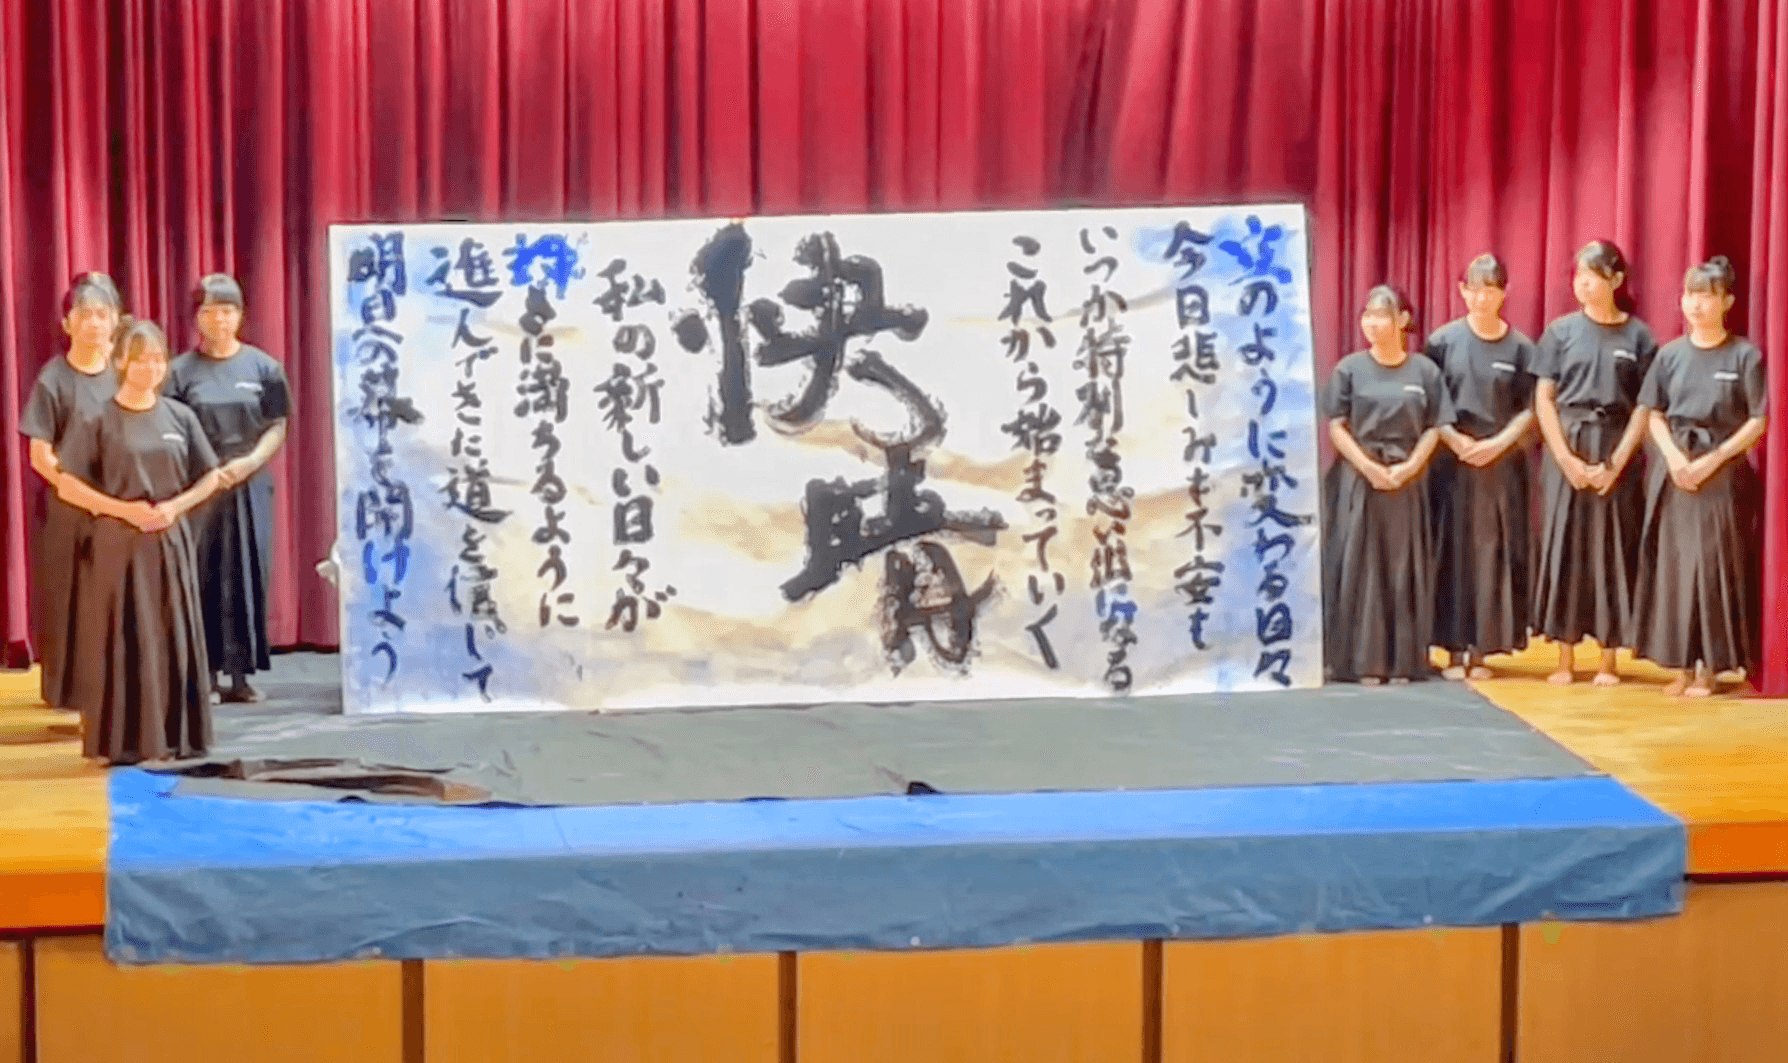 空のように変わる日々
今日悲しみも不安も
いつか特別な思い出になる
これから始まっていく
快晴
私の新しい日々が
輝きに満ちるように
進んできた道を信じて
明日への幕を開けよう